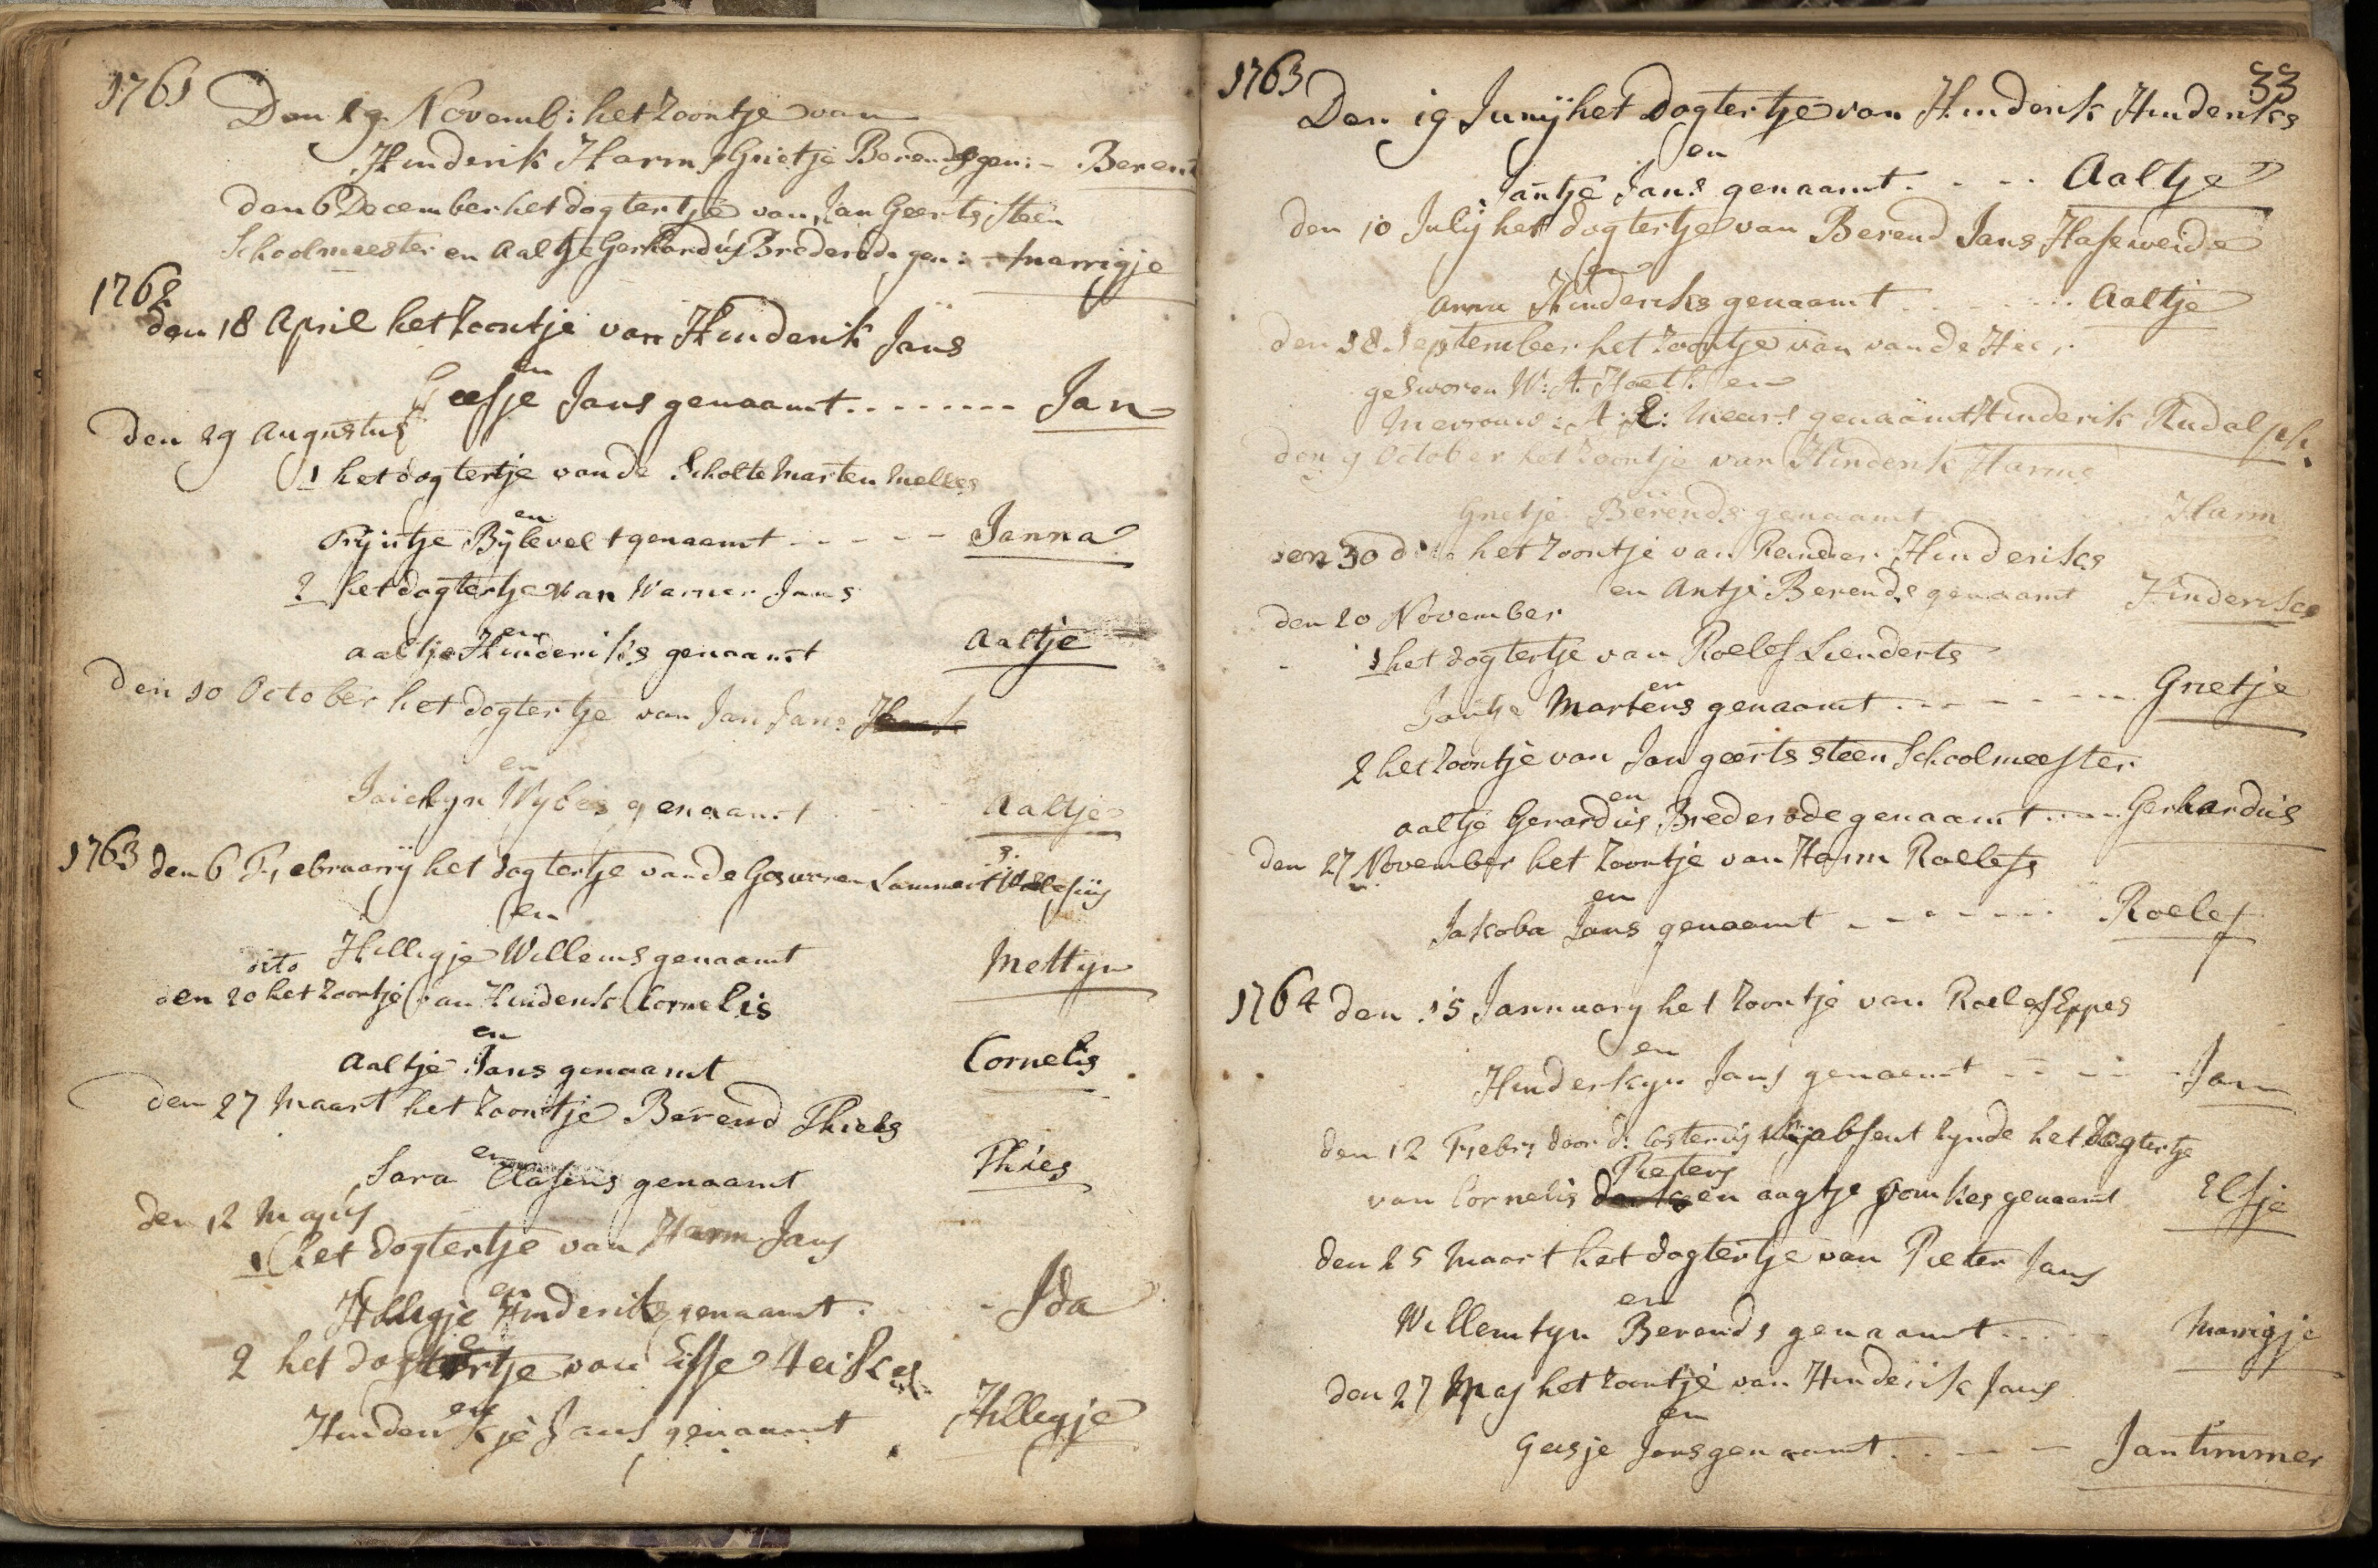 1761
Den 19 Novemb: het Zoontje van
Hinderik Harms Grietje Berends gen: - Berend
den 6 December het dogtertje van Jan Geerts Steen
Schoolmeester en Aaltje Gerhardus Brederode gen: - marrigje
1762
den 18 April het Zoontje van Hinderik Jans
en
Geesje Jans genaamt - - - - - - - - Jan
den 29 Augustus
1 het dogtertje van de Scholte Marten Melles
en
Trijntje Bijlevelt genaamt - - - - - Janna
2 het dogtertje van Warner Jans
en
aaltje Hinderiks genaamt Aaltje
den 10 October het dogtertje van Jan Jans
en
Wybes genaamt Aaltje
1763 den 6 Februarij het dogtertje van de Gesworen Lammert
en
Hilligje Willems genaamt Mettijn
dito
den 20 het Zoontje van Hinderik Cornelis
en
Aaltje Jans genaamt Cornelis
den 27 Maart het Zoontje Berend Thies
en
Sara Clasens genaamt Thies
den 12 Majus
1 het dogtertje van Harm Jans
en
Hilligje Hinderiks genaamt - Ida
2 het dogtertje van
en
Hinderikje Jans genaamt Hilligje
33
1763
Den 19 Junij het Dogtertje van Hinderik Hinderiks
en
Jantje Jans genaamt - - - Aaltje
den 10 Julij het dogtertje van Berend Jans Haseweide
en
Anna Hinderiks genaamt Aaltje
den 18 September het Zoontje van van de Heer
gesworen W: A: en
Mevrouw: A: genaamt Hinderik Rudalph.
den 9 October het Zoontje van Hinderik Harms
Grietje Berends genaamt Harm
den 30 dito het Zoontje van Reinder Hinderikes
en Antje Berends genaamt Hinderikes
den 20 November
1 het dogtertje van Roelef Lienderts
en
Jantje Martens genaamt - - - - - Grietje
2 het Zoontje van Jan geerts steen Schoolmeester
en
aaltje Gerardus Brederode genaamt - - - Gerhardus
den 27 November het Zoontje van Harm Roelefs
en
Jakoba Jans genaamt - - - - - - Roelef
1764 den 15 Jannuary het Zoontje van Roelef Eppes
en
Hinderkyn Jans genaemt - - - - Jan
den 12 Febry door d: Costerus absent zynde het Dogtertje
Pieters
van Cornelis en aagtje genaamt Elsje
den 25 Maart het dogtertje van Pieter Jans
en
Willemtyn Berends genaamt - - - Marrigje
den 27 May het Zoontje van Hinderik Jans
en
Geesje Jans genaamt - - - Jan timmer